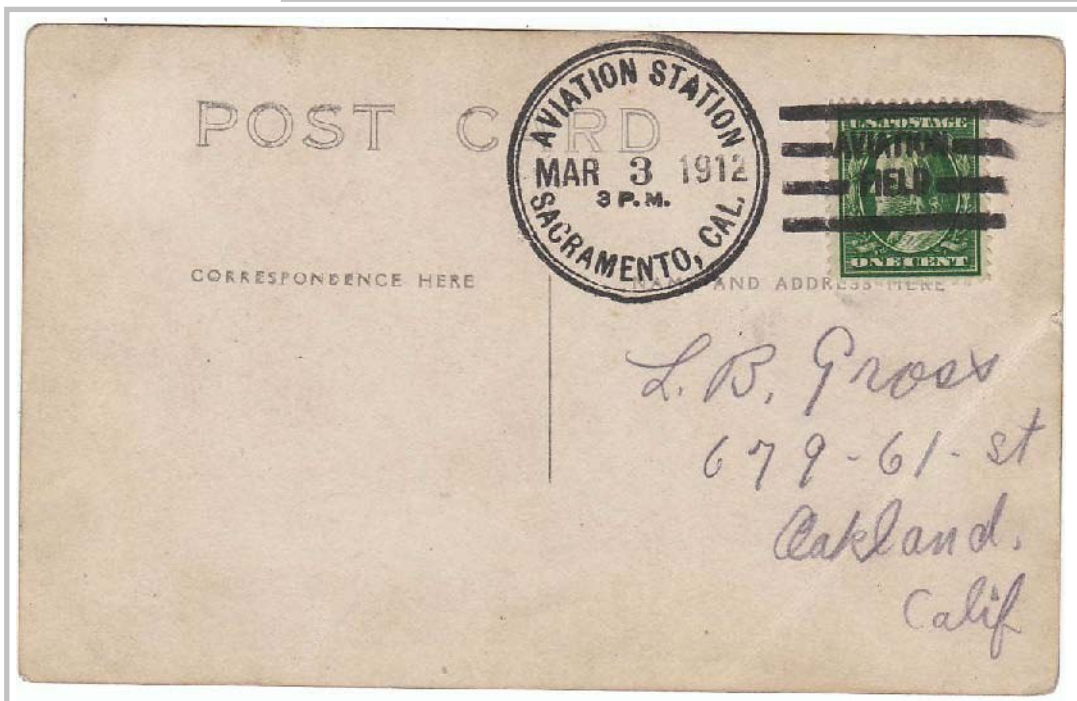 POST CARD
AVIATION STATION
MAR 3 1912
3 P.M.
SACRAMENTO, CAL.
U.S. POSTAGE
AVIATION
FIELD
ONE CENT
CORRESPONDENCE HERE
NAME AND ADDRESS HERE
L. B. Gross
679-61-st
Oakland.
Calif